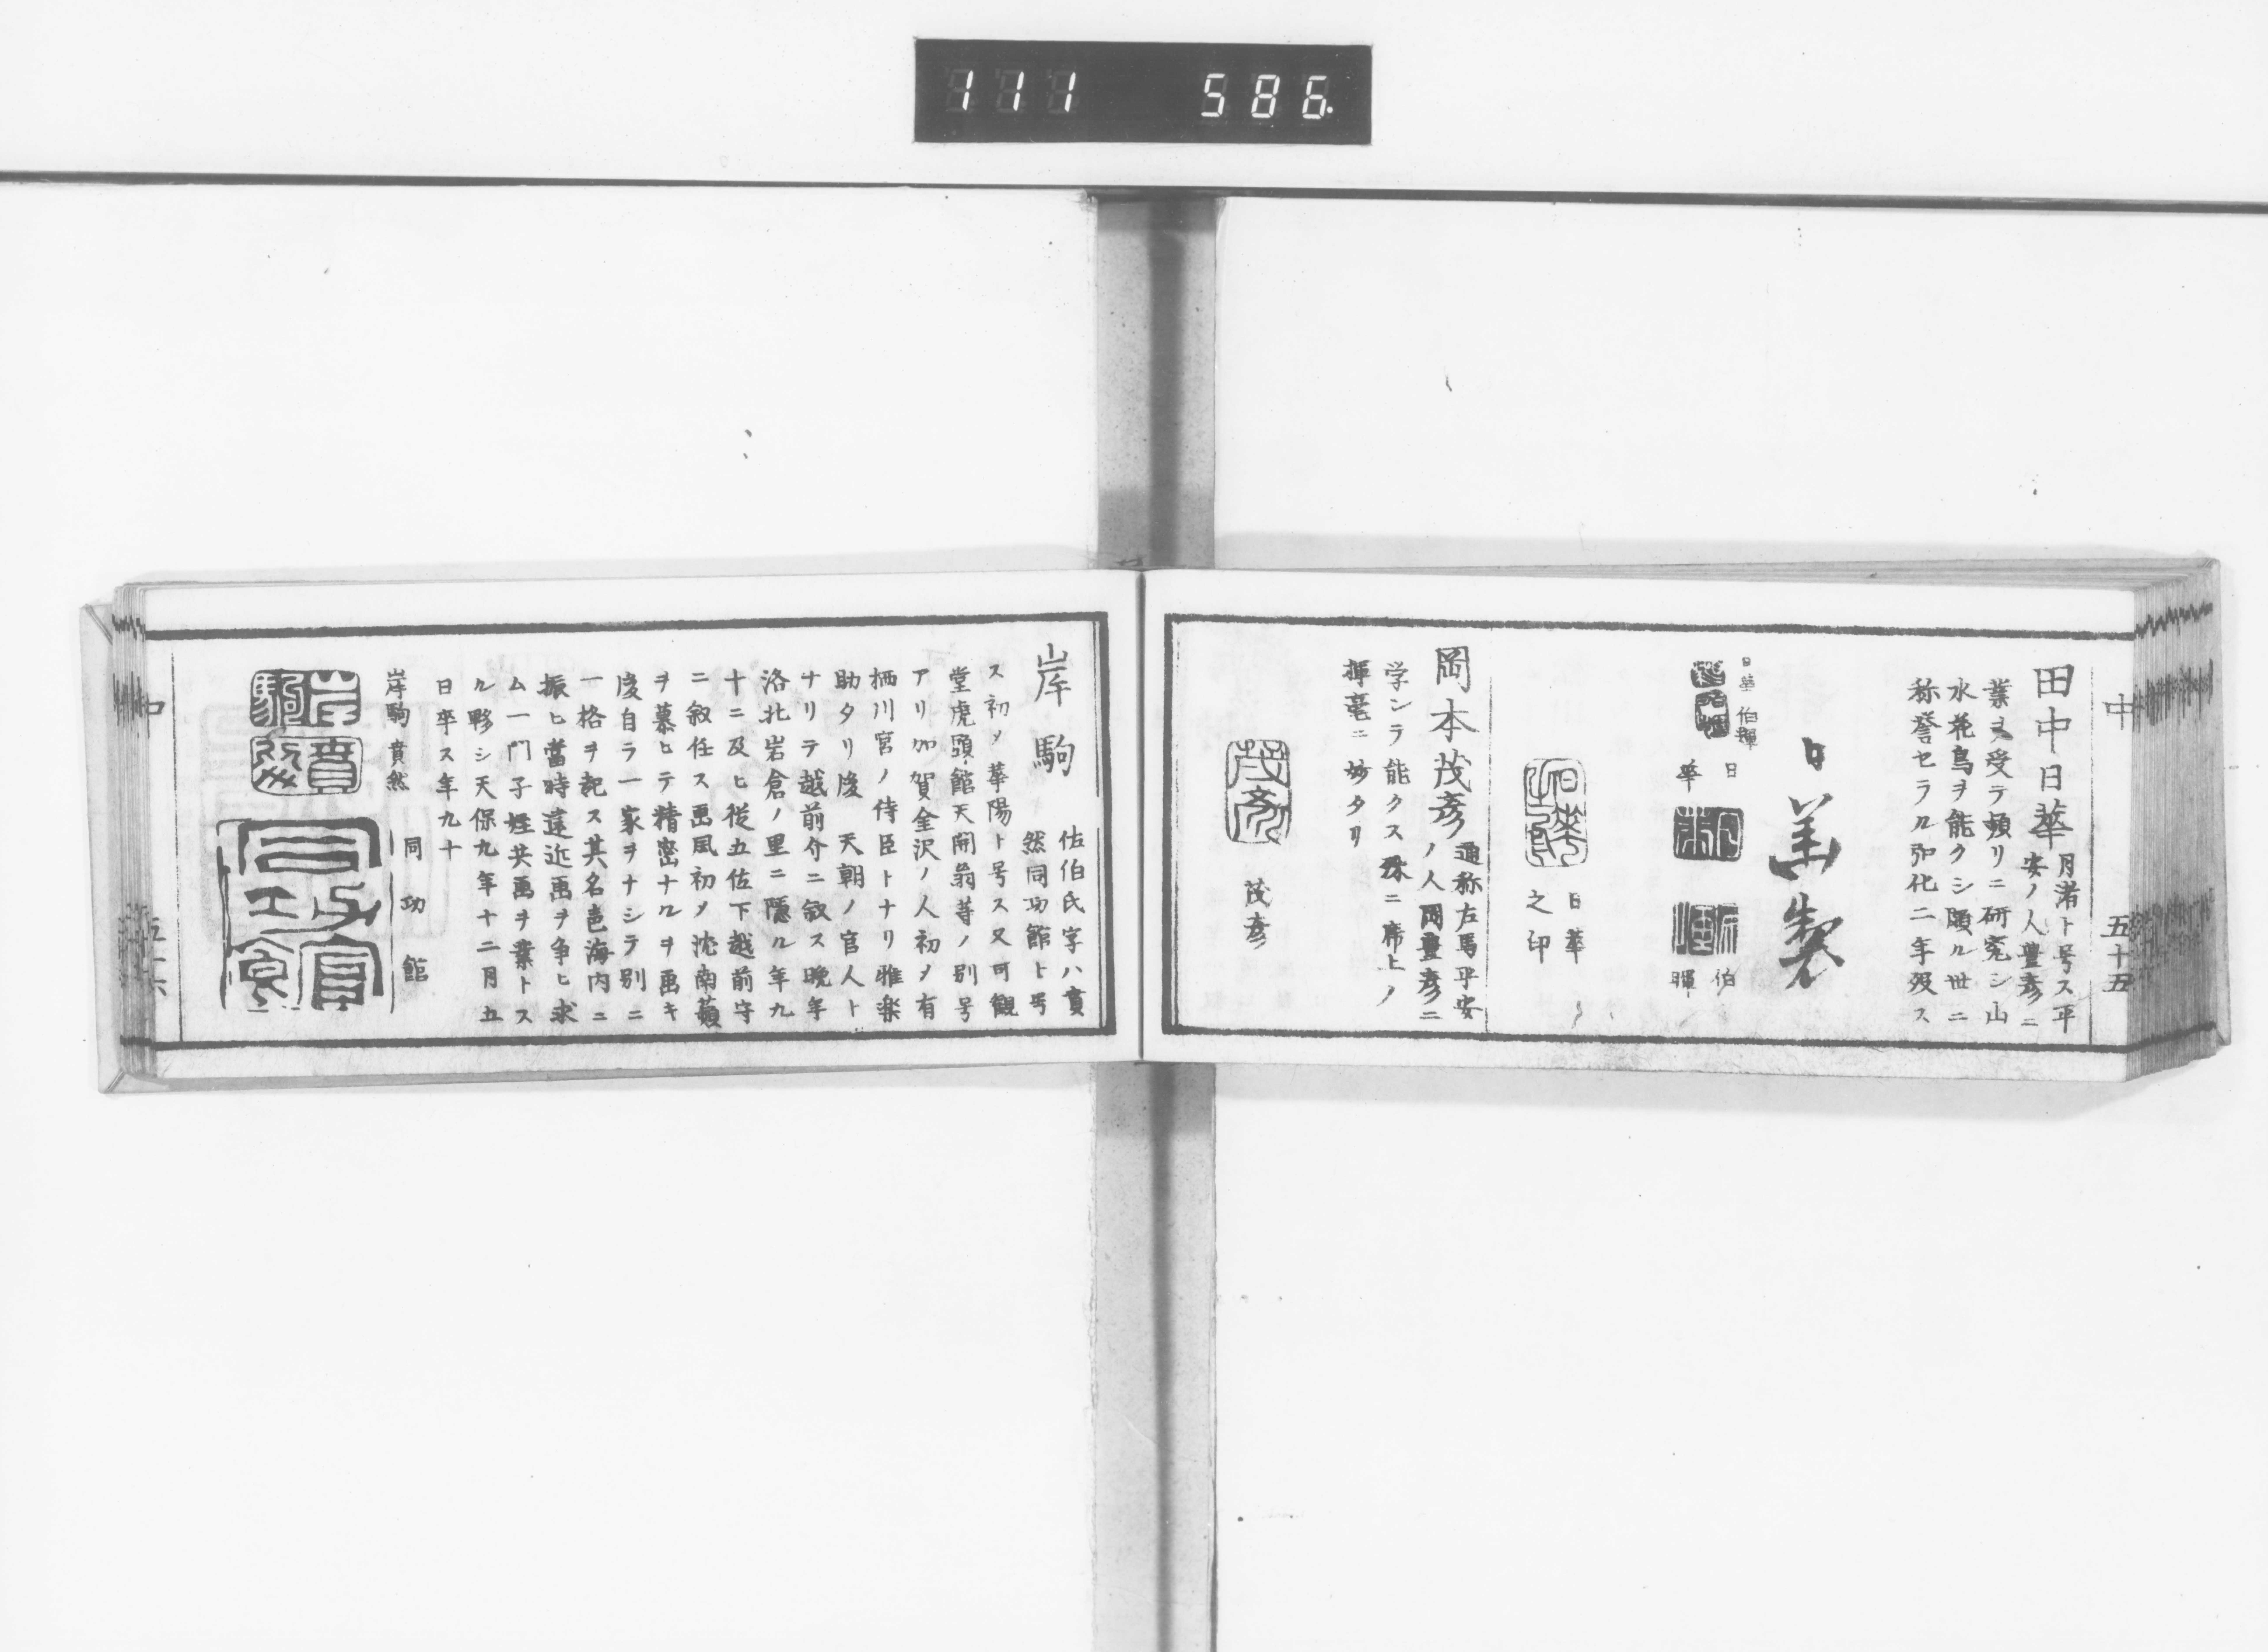 111 586.
中
五十五
田中日華
月渚ト号ス平
安ノ人豊彦ニ
業ヲ受テ頻リニ研究シ山
水花鳥ヲ能クシ頗ル世ニ
称誉セラル弘化二年歿ス
日華製
日華 伯暉
日華
伯暉
日華
之印
岡本茂彦
通称左馬平安
ノ人岡豊彦ニ
学ンテ能クス殊ニ席上ノ
揮毫ニ妙タリ
茂彦
岸駒
佐伯氏字ハ賁
然同功館ト号
ス初メ華陽ト号ス又可観
堂虎頭館天開翁等ノ別号
アリ加賀金沢ノ人初メ有
栖川宮ノ侍臣トナリ雅楽
助タリ後 天朝ノ官人ト
ナリテ越前介ニ叙ス晩年
洛北岩倉ノ里ニ隠ル年九
十ニ及ヒ従五佐下越前守
ニ叙任ス画風初メ沈南蘋
ヲ慕ヒテ精密ナルヲ画キ
後自ラ一家ヲナシテ別ニ
一格ヲ記ス其名声海内ニ
振ヒ當時遠近画ヲ争ヒ求
ム一門子姪共画ヲ業トス
ル夥シ天保九年十二月五
日卒ス年九十
岸駒 賁然
同功館
中
五十六